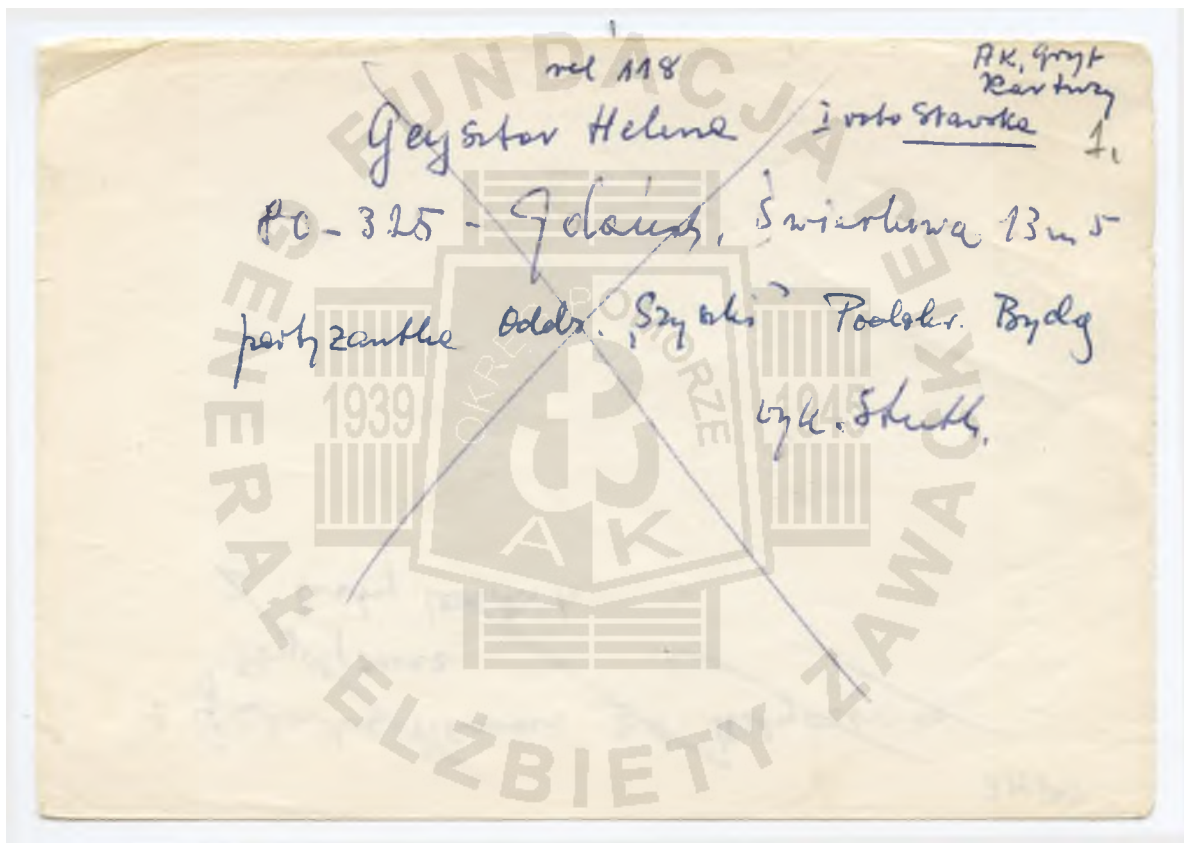 rel 118
AK, Gryf
Kartuzy
1.
Geysztor Helena i voto Stawska
80-325 - Gdańsk, Świerkowa 13 m 5
partyzantka Oddz. "Szyszki" Podokr. Bydg
FUNDACJA GENERAŁ ELŻBIETY ZAWACKIEJ
OKRĘG POMORZE
1939
1945
AK